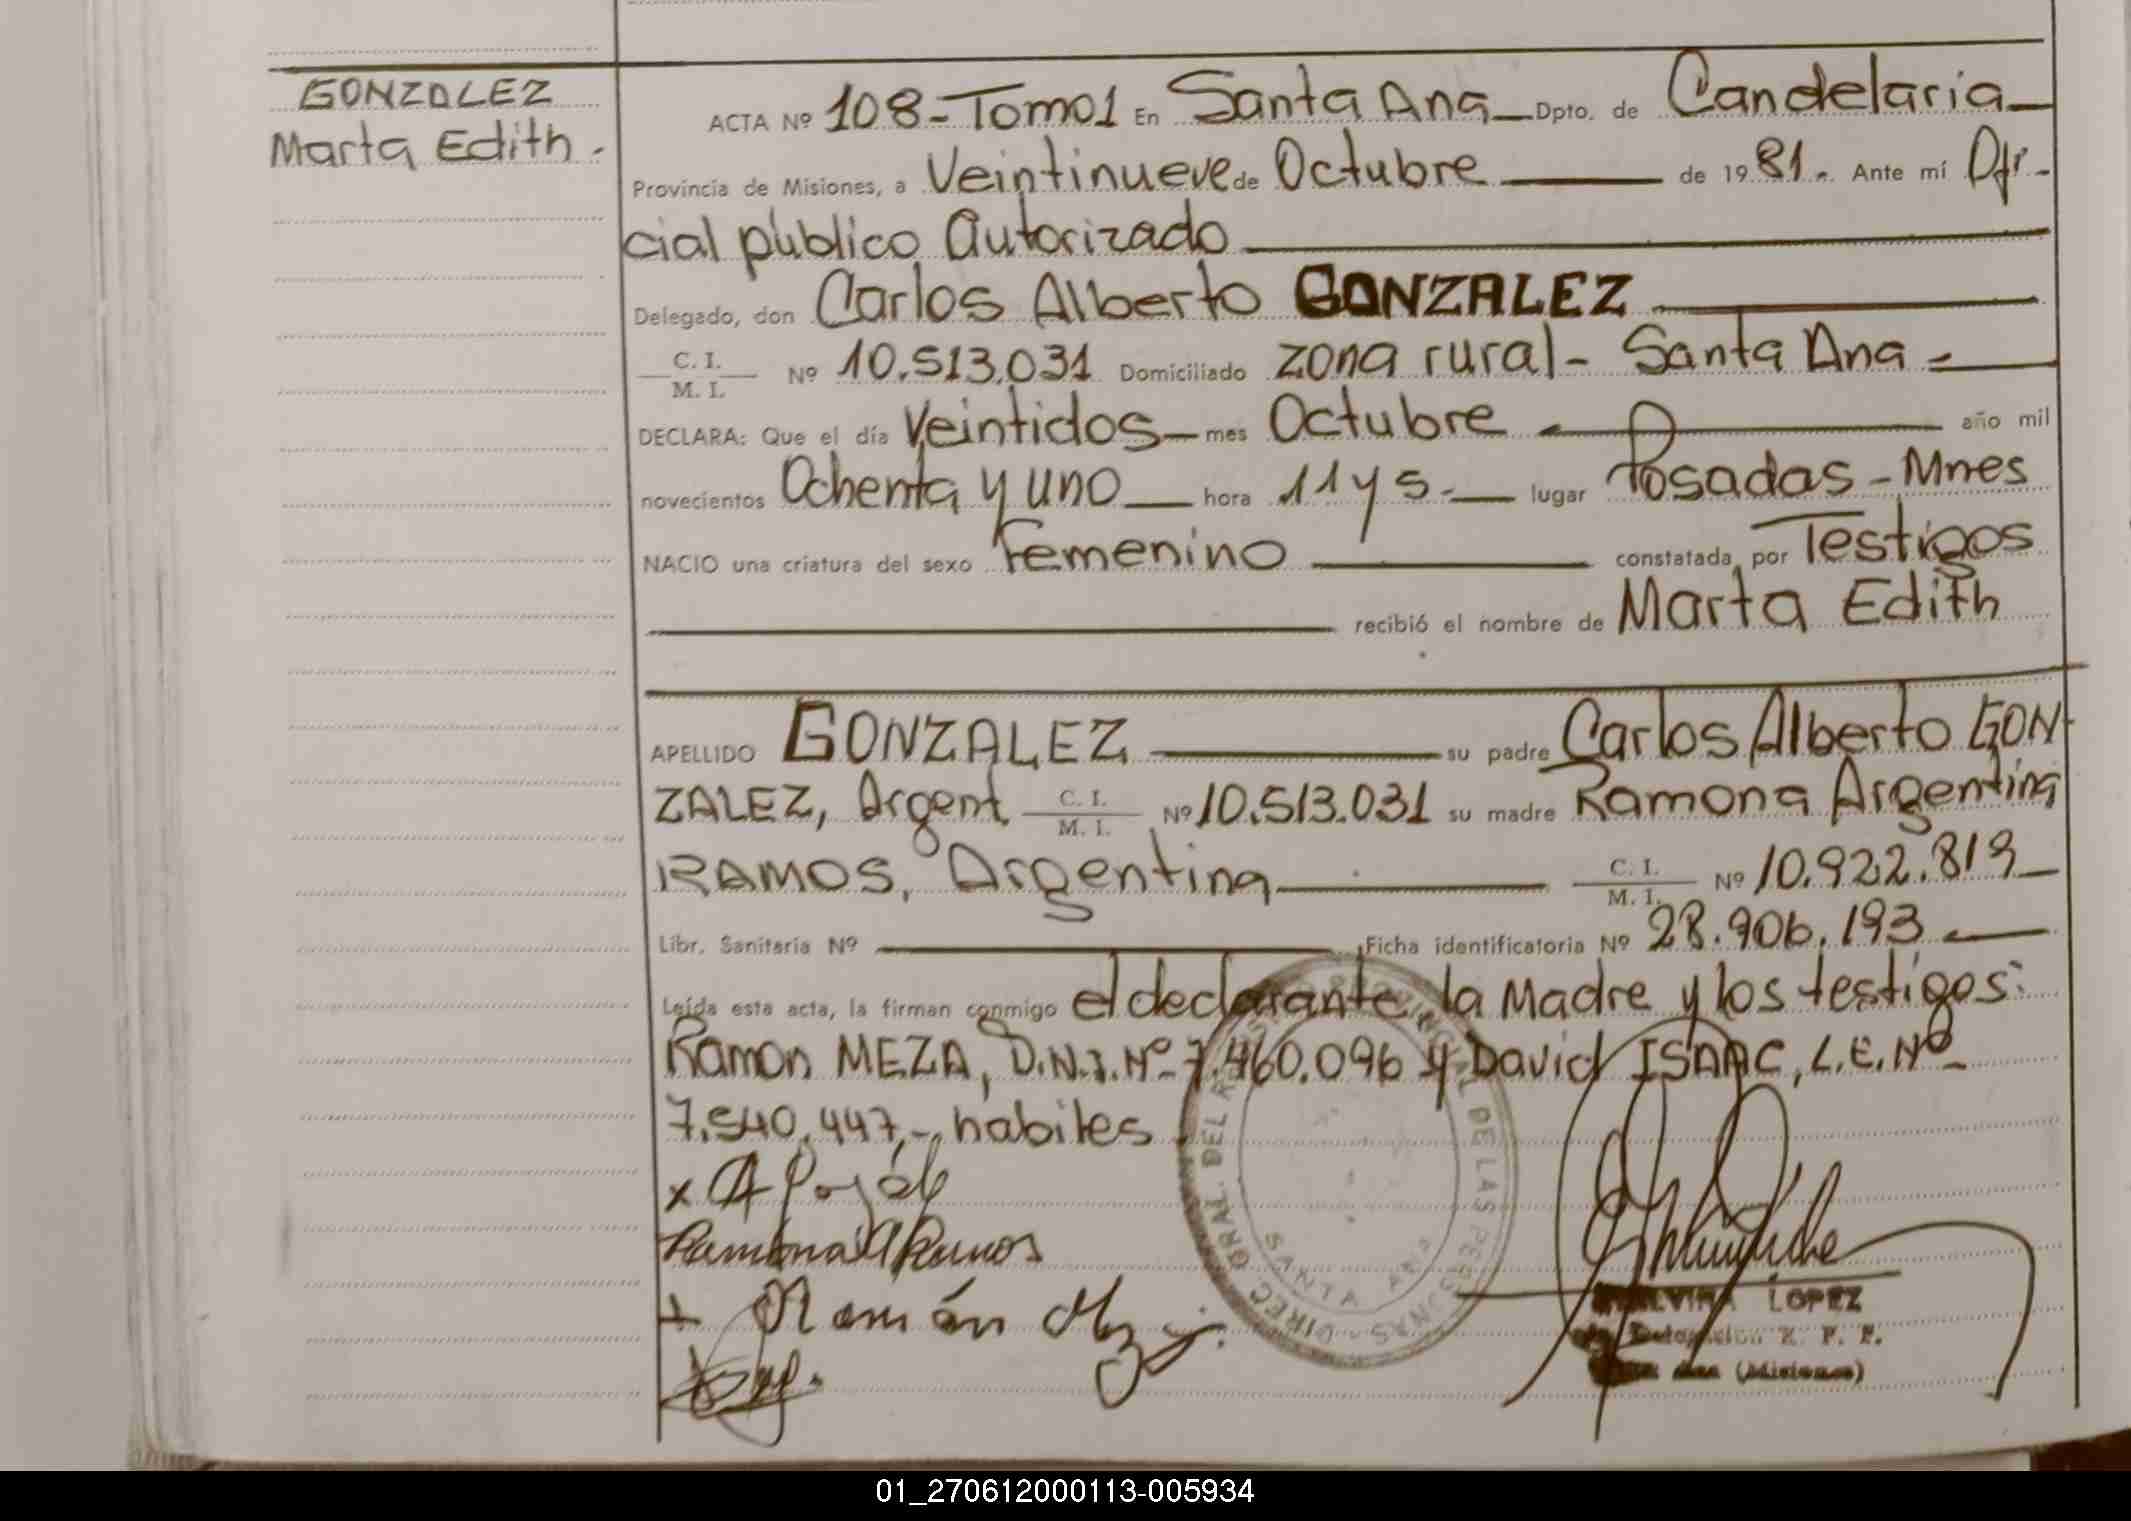 GONZALEZ
Marta Edith.
ACTA Nº 108-Tomo1 En Santa Ana Dpto. de Candelaria
Provincia de Misiones, a Veintinueve de Octubre de 1981.- Ante mí Ofi-
cial público Autorizado
Delegado, don Carlos Alberto GONZALEZ
C. I.
M. I. Nº 10.513.031 Domiciliado zona rural - Santa Ana
DECLARA: Que el día Veintidos mes Octubre año mil
novecientos Ochenta y uno hora 11 y 5.- lugar Posadas - Mnes
NACIO una criatura del sexo Femenino constatada por Testigos
recibió el nombre de Marta Edith
APELLIDO GONZALEZ su padre Carlos Alberto GON-
ZALEZ, Argent. C. I. M. I. Nº 10.513.031 su madre Ramona Argentina
RAMOS, Argentina C. I. M. I. Nº 10.922.819
Libr. Sanitaria Nº Ficha identificatoria Nº 28.906.193
Leída esta acta, la firman conmigo el declarante, la Madre y los testigos:
Ramon MEZA, D.N.I. Nº 7.460.096 y David ISAAC, L.E. Nº
7.540.447,- habiles
Ramona A Ramos
Ramón
DIREC. GRAL. DEL DE LAS PERSONAS
SANTA ANA
LOPEZ
(Misiones)
01_270612000113-005934